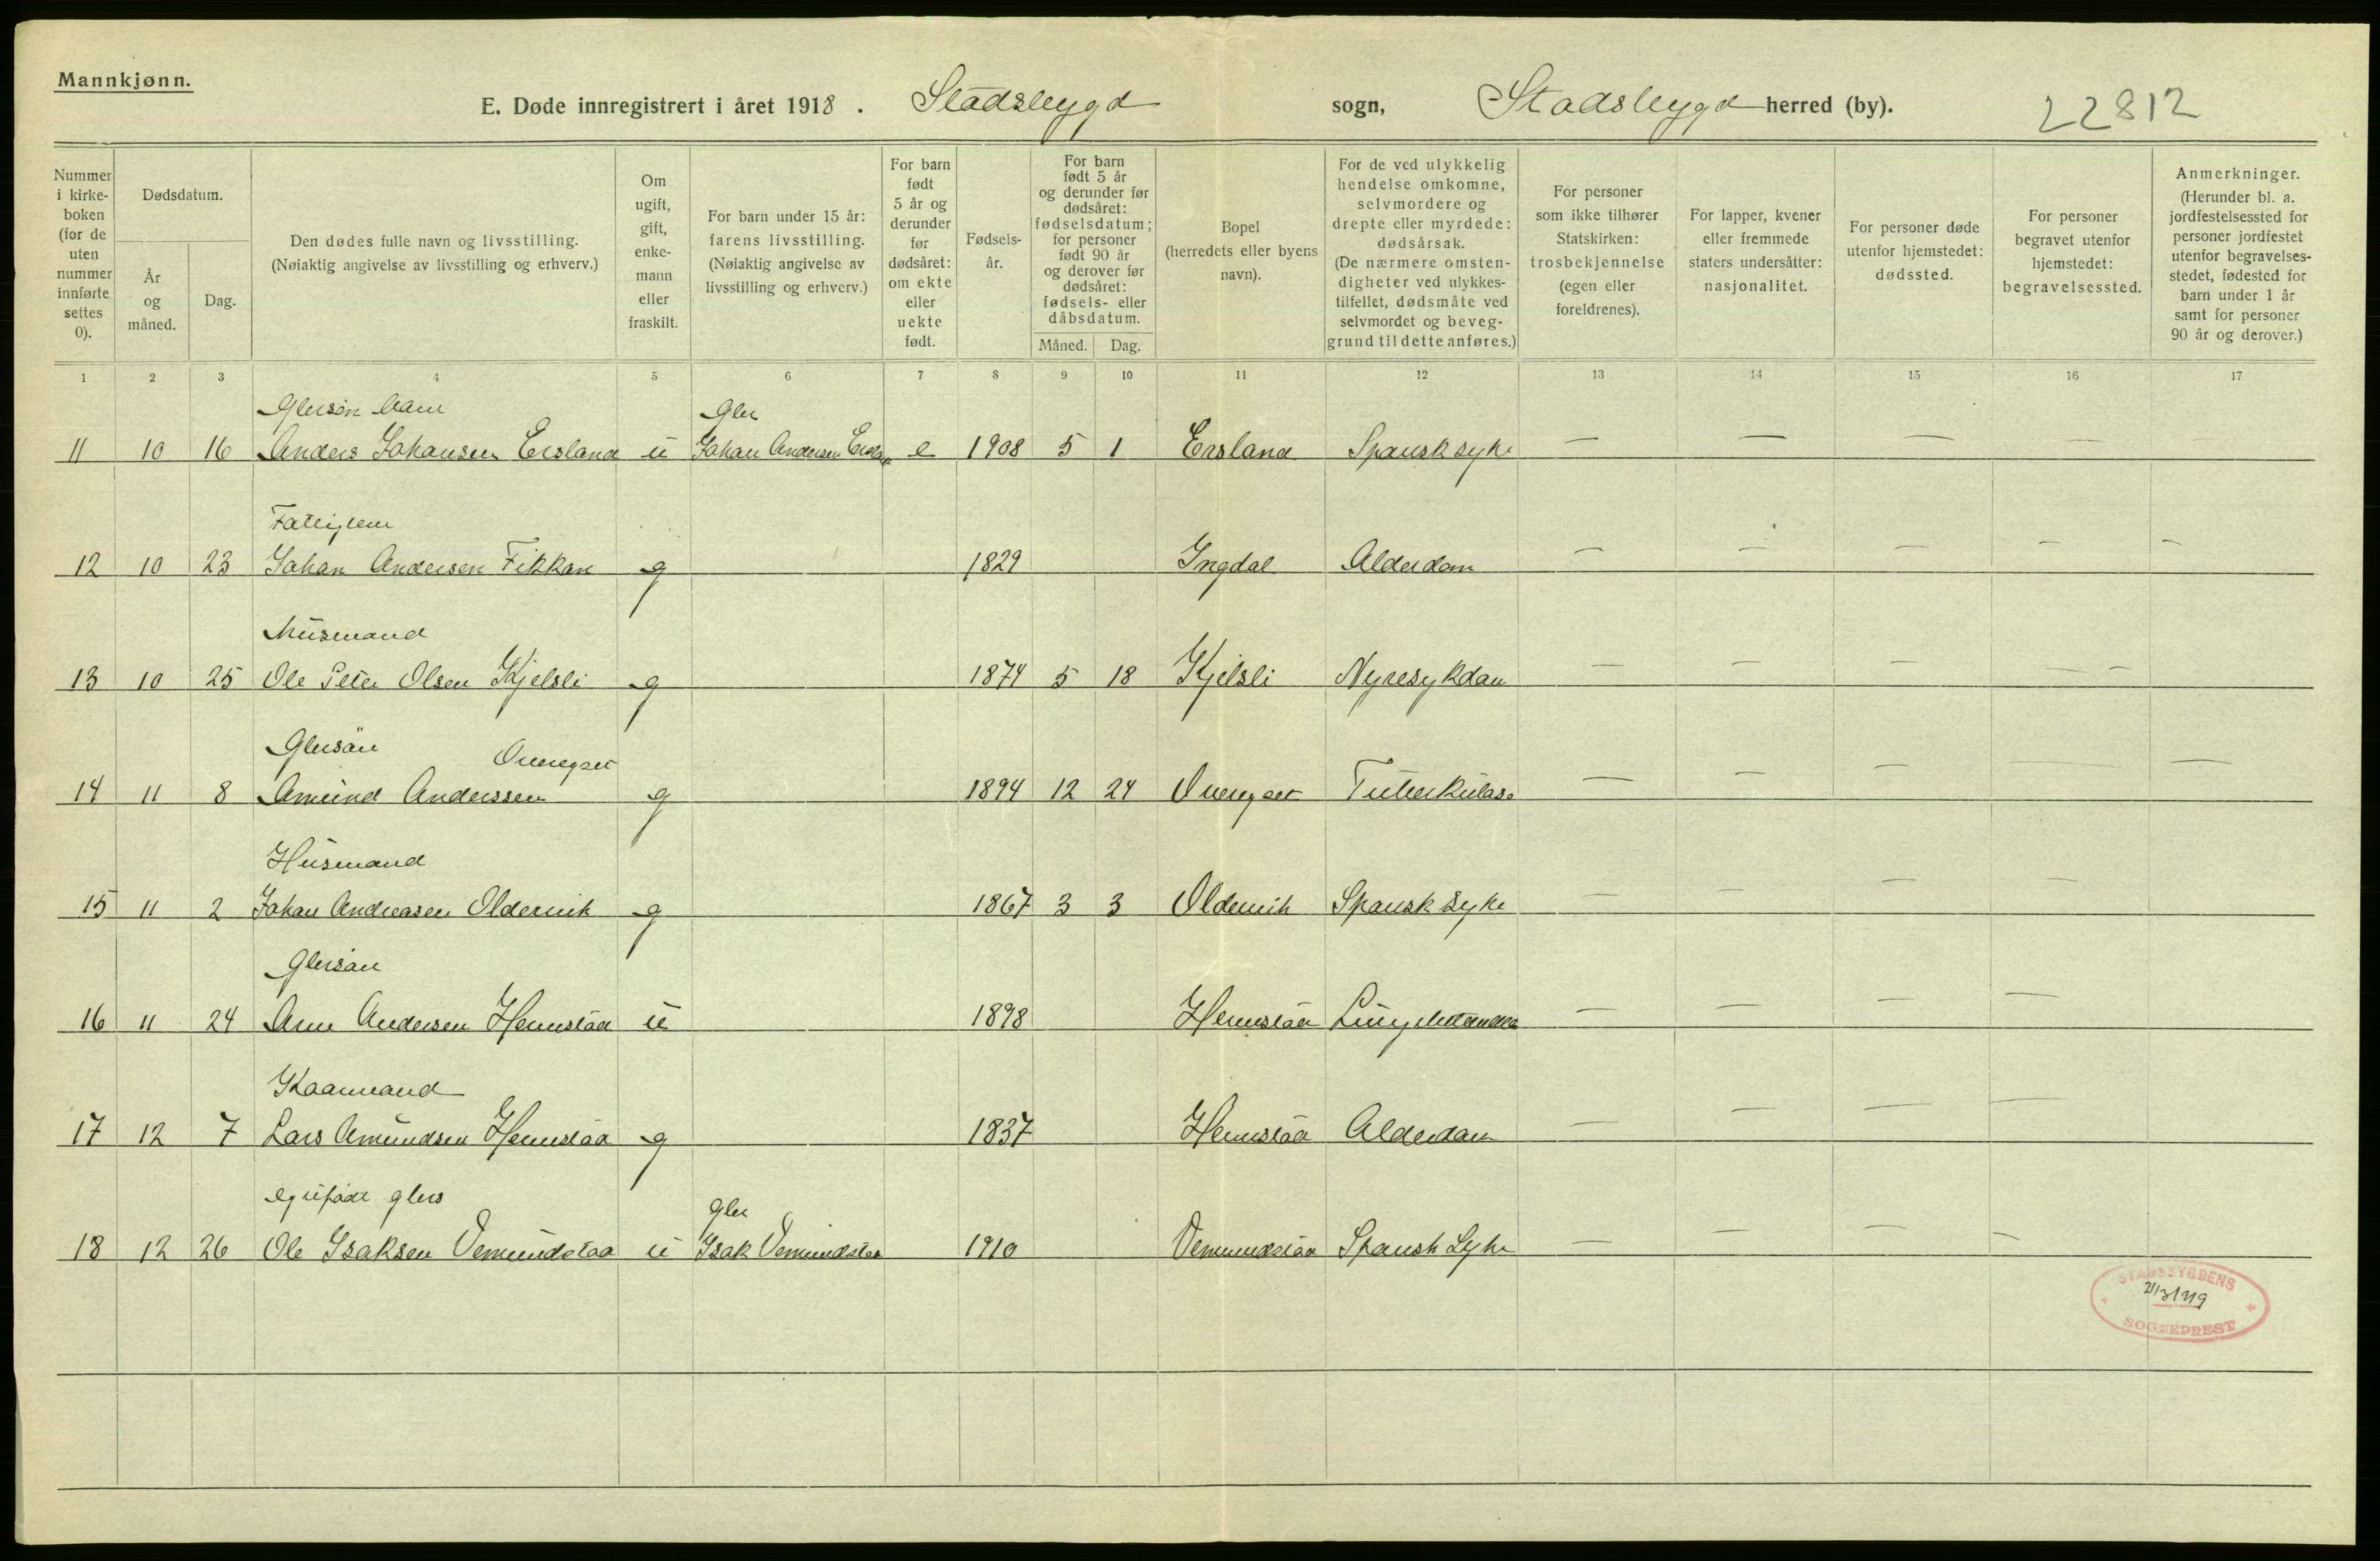 Mannkjønn.
E. Døde innregistrert i året 1918. Stadsbygd sogn, Stadsbygd herred (by). 22812
Nummer i kirkeboken (for de uten nummer innførte settes 0).
Dødsdatum.
År og måned.
Dag.
Den dødes fulle navn og livsstilling.
(Nøiaktig angivelse av livsstilling og erhverv.)
Om ugift, gift, enkemann eller fraskilt.
For barn under 15 år: farens livsstilling.
(Nøiaktig angivelse av livsstilling og erhverv.)
For barn født 5 år og derunder før dødsåret: om ekte eller uekte født.
Fødselsår.
For barn født 5 år og derunder før dødsåret: fødselsdatum; for personer født 90 år og derover før dødsåret: fødsels- eller dåbsdatum.
Måned. Dag.
Bopel (herredets eller byens navn).
For de ved ulykkelig hendelse omkomne, selvmordere og drepte eller myrdede: dødsårsak.
(De nærmere omstendigheter ved ulykkestilfellet, dødsmåte ved selvmordet og beveggrund til dette anføres.)
For personer som ikke tilhører Statskirken: trosbekjennelse (egen eller foreldrenes).
For lapper, kvener eller fremmede staters undersåtter: nasjonalitet.
For personer døde utenfor hjemstedet: dødssted.
For personer begravet utenfor hjemstedet: begravelsessted.
Anmerkninger.
(Herunder bl. a. jordfestelsessted for personer jordfestet utenfor begravelsesstedet, fødested for barn under 1 år samt for personer 90 år og derover.)
1 2 3 4 5 6 7 8 9 10 11 12 13 14 15 16 17
Glersøn barn Gbr
11 10 16 Anders Johansen Ersland u Johan Andersen Ersland e 1908 5 1 Ersland Spansksyke — — — —
Fattiglem
12 10 23 Johan Andersen Fikkan g 1829 Ingdal Alderdom — — — — —
Husmand
13 10 25 Ole Peter Olsen Kjelsli g 1874 5 18 Kjelsli Nyresykdom — — — — —
Gbrsøn
14 11 8 Amund Anderssen g 1894 12 24 Tuberkulose — — — — —
Husmand
15 11 2 Johan Andreasen Oldervik g 1867 3 3 Oldervik Spansk syke — — — —
Gbrsøn
16 11 24 Arne Andersen Hermstad u 1898 Hermstad — — — —
Kaarmand
17 12 7 Lars Amundsen Hermstad g 1837 Hermstad Alderdom — — — —
gbrs Gbr
18 12 26 Ole Isaksen Vemundstad u Isak Vemundstad 1910 Vemundstad Spansk Syke — — — —
STADSBYGDENS
21/3 1919
SOGNEPREST